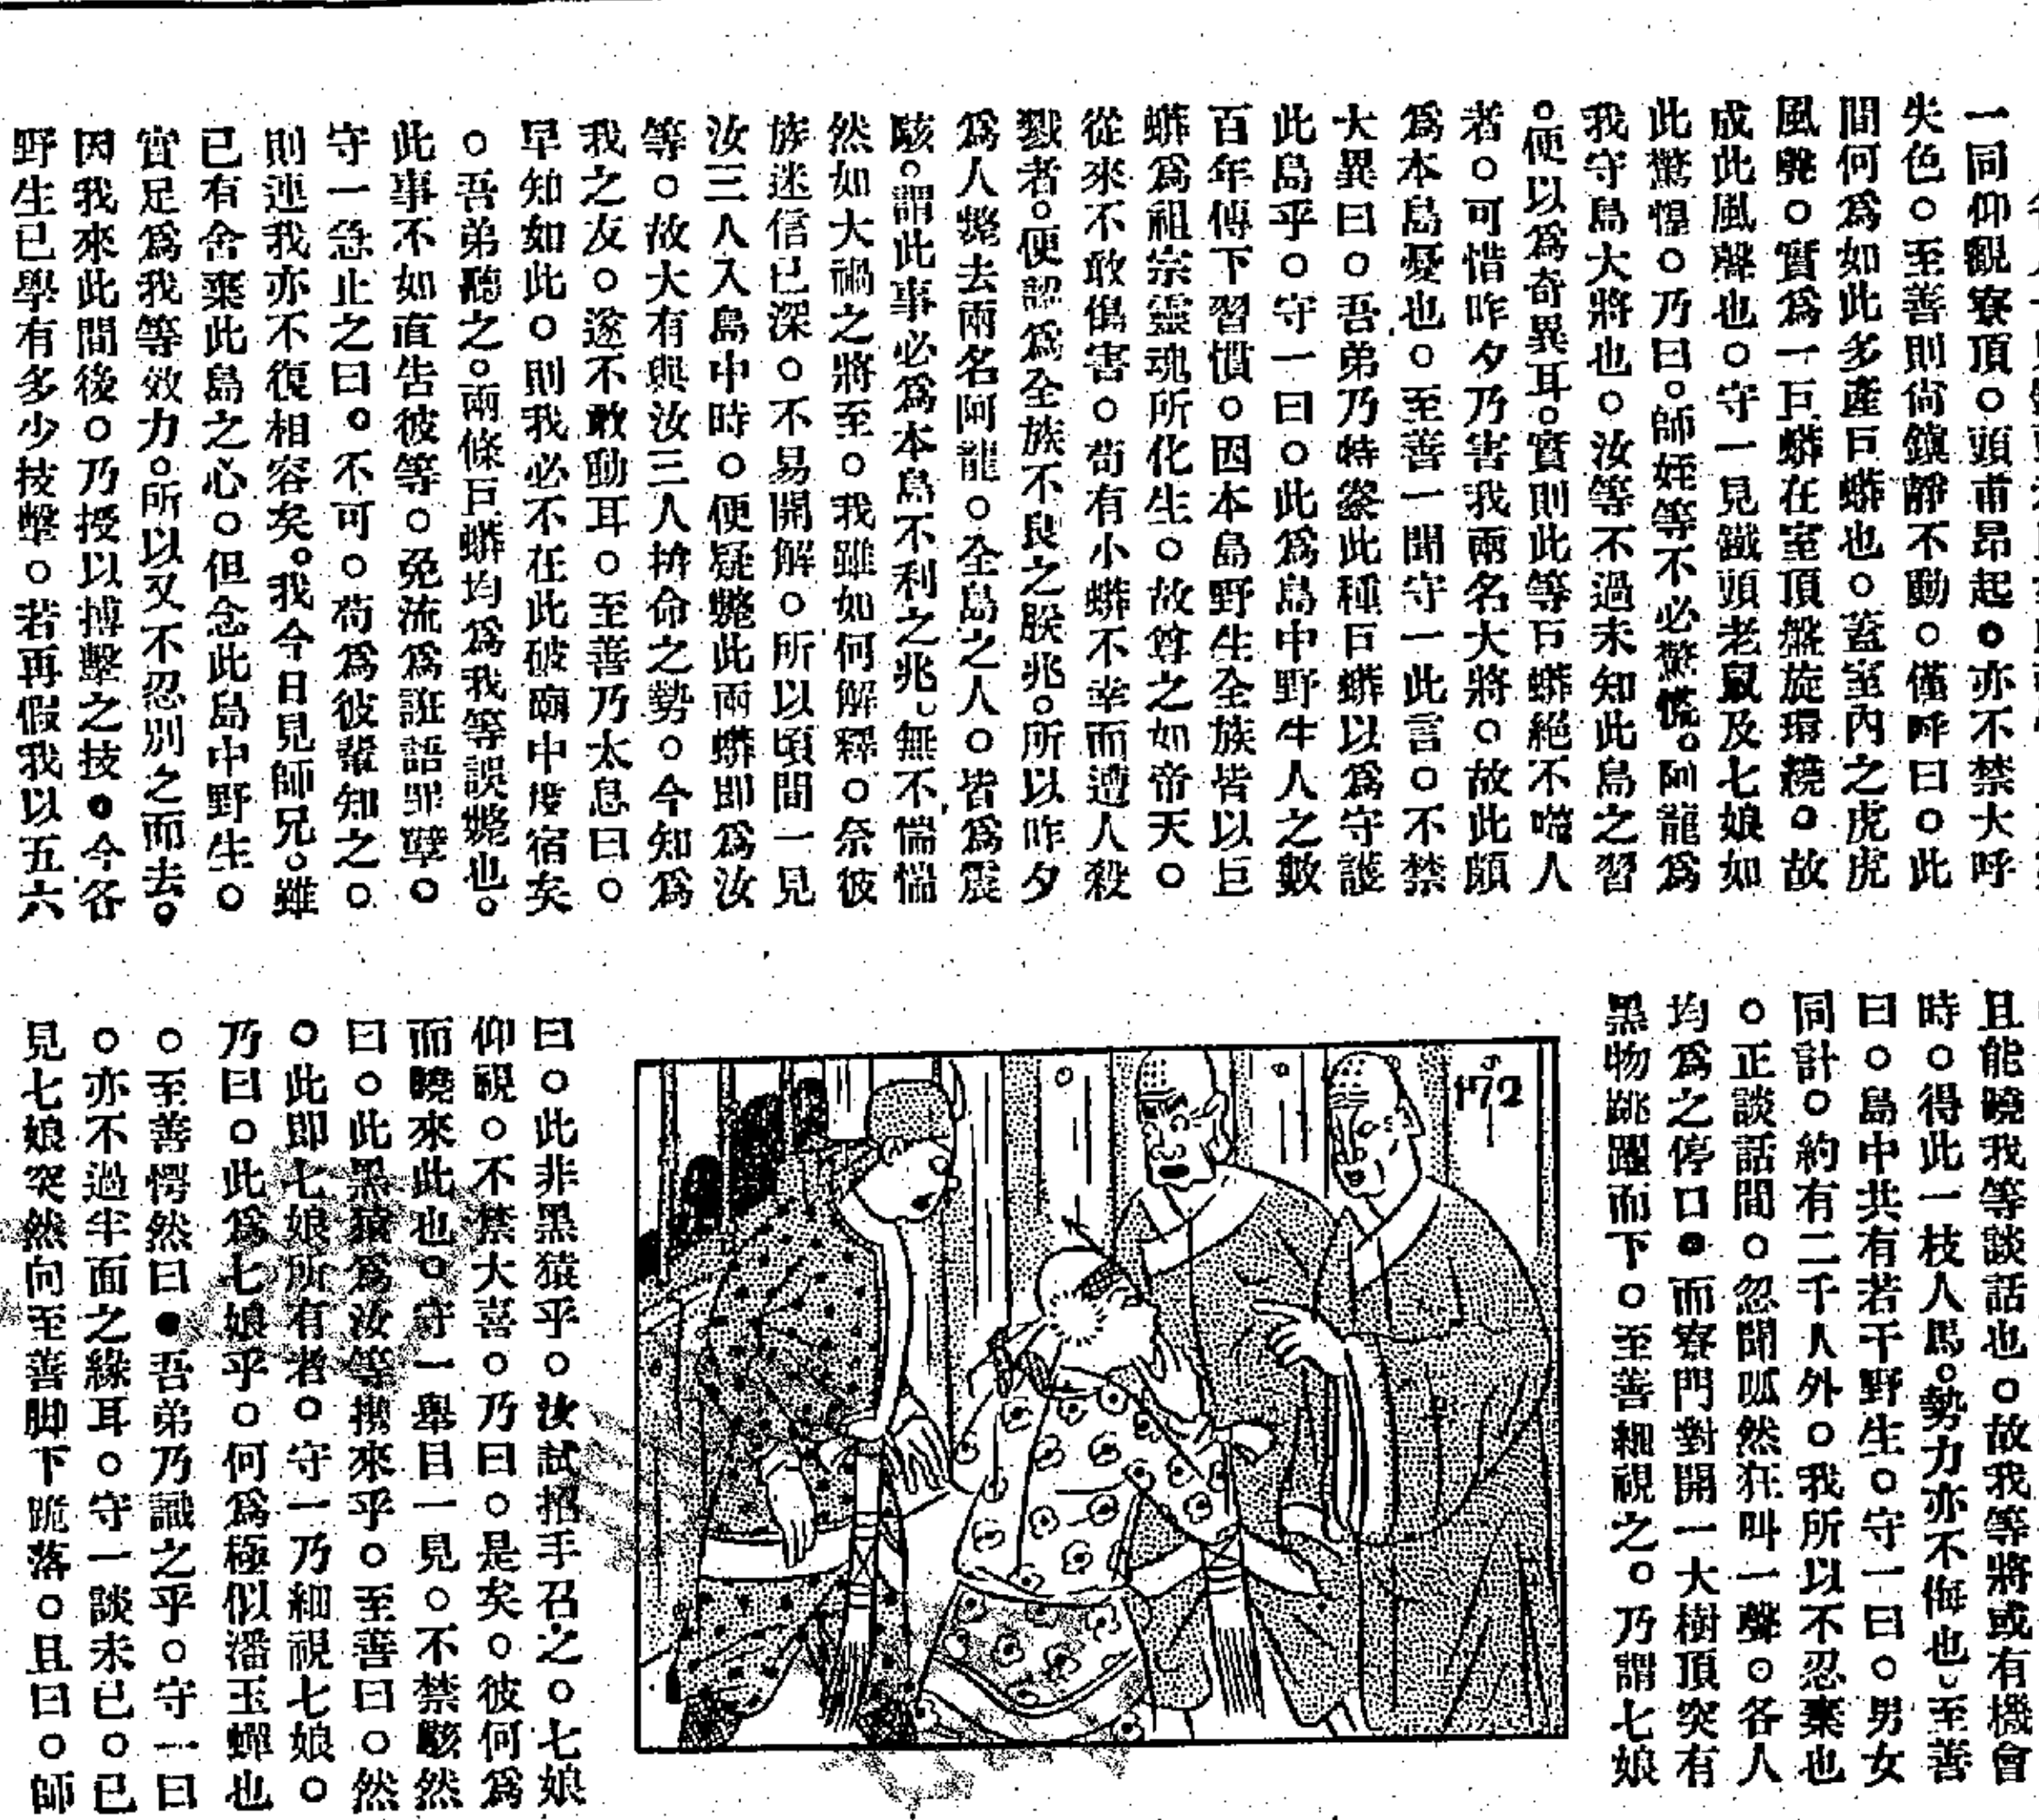 一同仰觀寮頂。○頭甫昂起○亦不禁大呼
失色○至善則尙鎮靜不動○僅呼曰○此
間何爲如此多產巨蟒也○蓋室內之虎虎
風聲○實爲一巨蟒在室頂盤旋環繞○故
成此風聲也○守一見鐵頭老鼠及七娘如
此驚惶○乃曰○師姪等不必驚慌○阿龍爲
我守島大將也○汝等不過未知此島之習
○便以爲奇異耳○實則此等巨蟒絕不噬人
者○可惜昨夕乃害我兩名大將○故此頗
爲本島憂也○至善一聞守一此言○不禁
大異曰○吾弟乃特豢此種巨蟒以爲守護
此島乎○守一曰○此爲島中野生人之數
百年傳下習慣○因本島野生全族皆以巨
蟒爲祖宗靈魂所化生○故尊之如帝天○
從來不敢傷害○茍有小蟒不幸而遭人殺
戮者○便認爲全族不良之朕兆○所以昨夕
爲人斃去兩名阿龍○全島之人○皆爲震
駭○謂此事必爲本島不利之兆、無不惴惴
然如大禍之將至○我雖如何解釋○奈彼
族迷信已深○不易開解○所以頃間一見
汝三人入島中時○便疑斃此兩蟒即爲汝
等○故大有與汝三人拚命之勢○今知爲
我之友○遂不敢動耳○至善乃太息曰○
早知如此○則我必不在此破廟中度宿矣
○吾弟聽之○兩條巨蟒均爲我等誤斃也○
此事不如直告彼等○免流爲誑語罪孽○
守一急止之曰○不可○茍爲彼輩知之○
則連我亦不復相容矣○我今日見師兄○雖
已有舍棄此島之心○但念此島中野生○
實足爲我等效力○所以又不忍別之而去○
因我來此間後○乃授以搏擊之技○今各
野生已學有多少技擊○若再假我以五六
且能曉我等談話也○故我等將或有機會
時○得此一枝人馬○勢力亦不侮也、至善
曰○島中共有若干野生○守一曰○男女
同計○約有二千人外○我所以不忍棄也
○正談話間○忽聞呱然狂叫一聲○各人
均爲之停口○而寮門對開一大樹頂突有
黑物跳躍而下○至善細視之○乃謂七娘
172
曰○此非黑猿乎○汝試招手召之○七娘
仰視○不禁大喜○乃曰○是矣○彼何爲
而曉來此也○守一舉目一見○不禁駭然
曰○此黑猿爲汝等携來乎○至善曰○然
○此即七娘所有者○守一乃細視七娘○
乃曰○此爲七娘乎○何爲極似潘玉蟬也
○至善愕然曰○吾弟乃識之乎○守一曰
○亦不過半面之緣耳○守一談未已○已
見七娘突然向至善脚下跪落○且曰○師